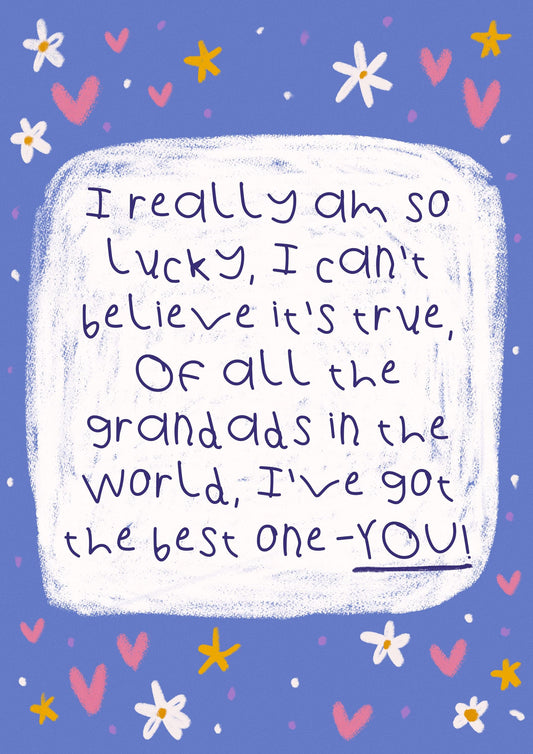 I really am so
lucky, I can't
believe it's true,
Of all the
grandads in the
world, I've got
the best one - YOU!